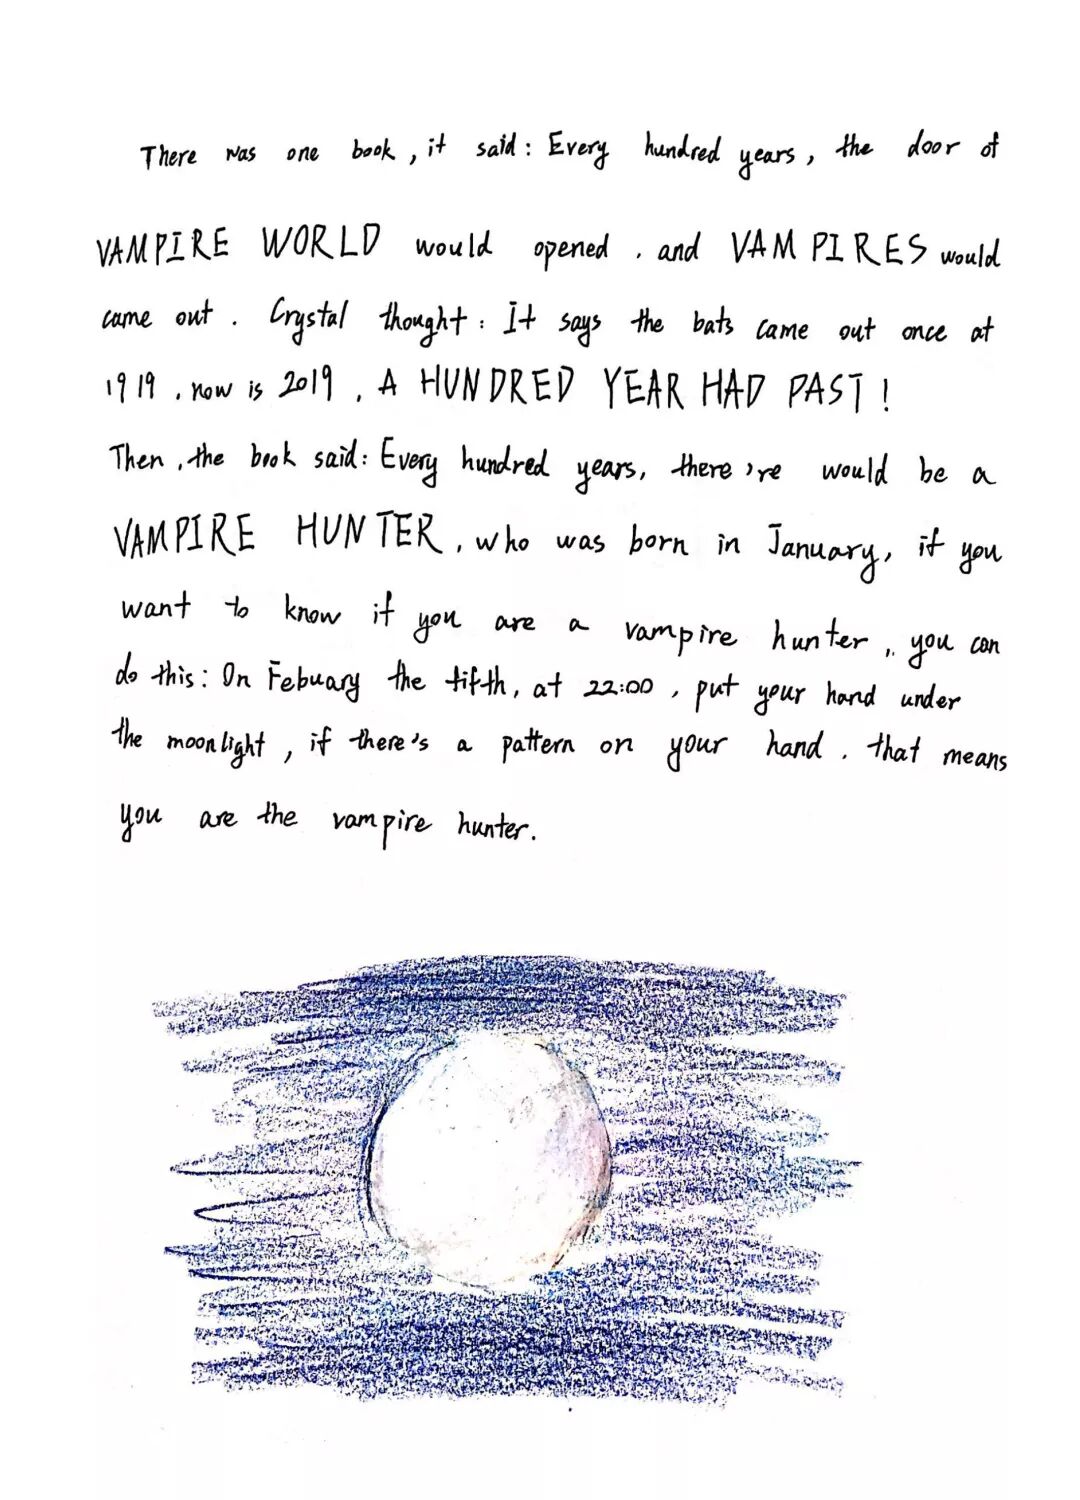 There was one book, it said: Every hundred years, the door of
VAMPIRE WORLD would opened, and VAMPIRES would
came out. Crystal thought: It says the bats came out once at
1919, now is 2019, A HUNDRED YEAR HAD PAST!
Then, the book said: Every hundred years, there're would be a
VAMPIRE HUNTER, who was born in January, if you
want to know if you are a vampire hunter, you can
do this: On Febuary the fifth, at 22:00, put your hand under
the moonlight, if there's a pattern on your hand. that means
you are the vampire hunter.